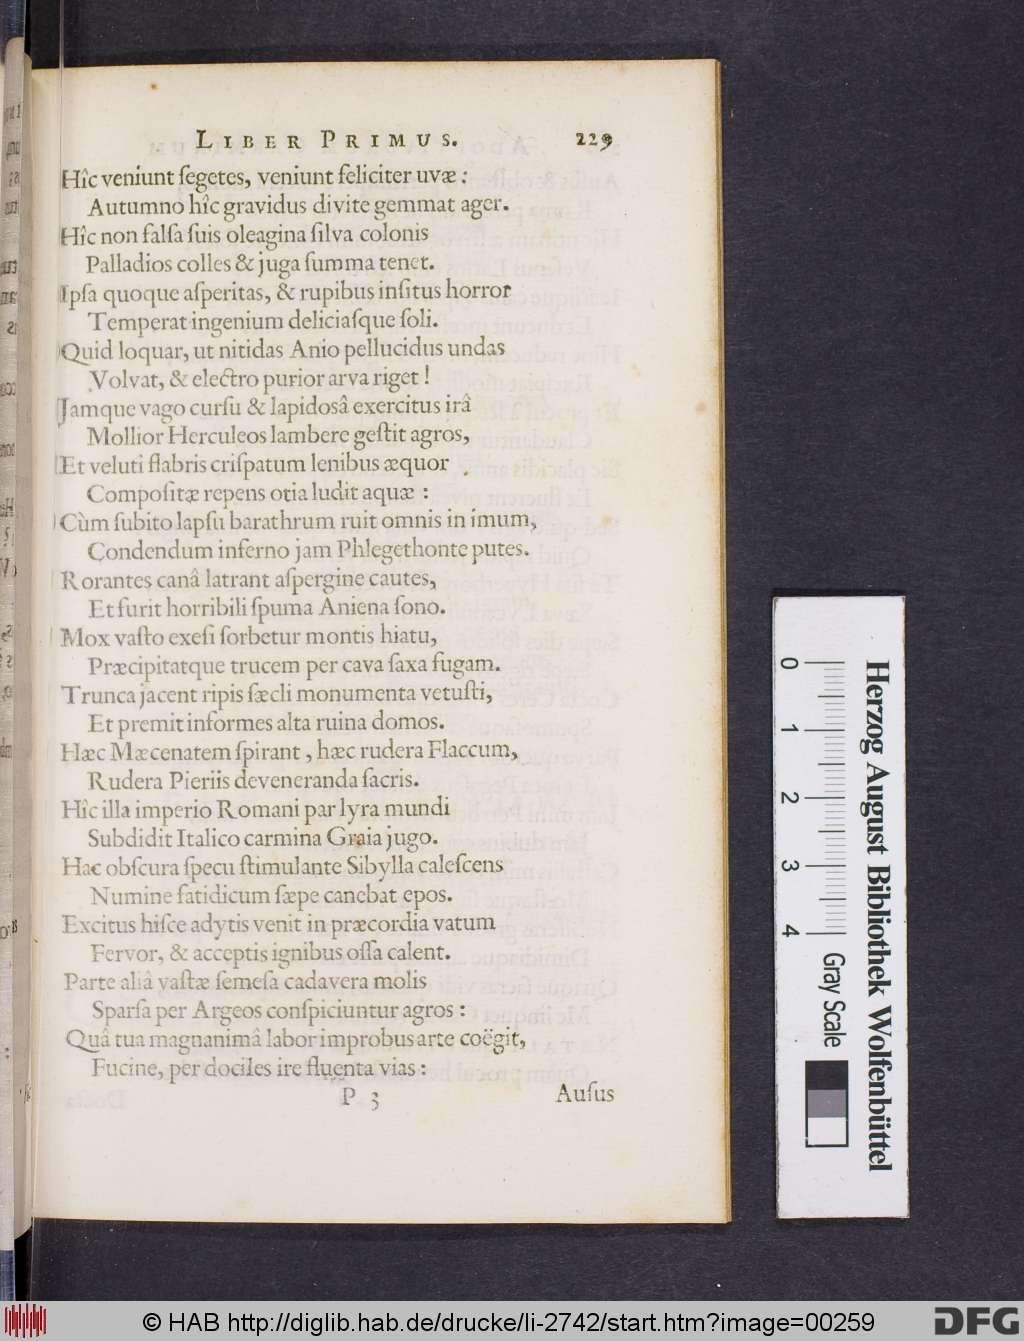 LIBER PRIMUS. 229
Hîc veniunt ſegetes, veniunt feliciter uvæ:
Autumno hîc gravidus divite gemmat ager.
Hîc non falſa ſuis oleagina ſilva colonis
Palladios colles & juga ſumma tenet.
Ipſa quoque aſperitas, & rupibus inſitus horror
Temperat ingenium deliciaſque ſoli.
Quid loquar, ut nitidas Anio pellucidus undas
Volvat, & electro purior arva riget!
Jamque vago curſu & lapidosâ exercitus irâ
Mollior Herculeos lambere geſtit agros,
Et veluti flabris criſpatum lenibus æquor
Compoſitæ repens otia ludit aquæ:
Cùm ſubito lapſu barathrum ruit omnis in imum,
Condendum inferno jam Phlegethonte putes.
Rorantes canâ latrant aſpergine cautes,
Et furit horribili ſpuma Aniena ſono.
Mox vaſto exeſi ſorbetur montis hiatu,
Præcipitatque trucem per cava ſaxa fugam.
Trunca jacent ripis ſæcli monumenta vetuſti,
Et premit informes alta ruina domos.
Hæc Mæcenatem ſpirant, hæc rudera Flaccum,
Rudera Pieriis deveneranda ſacris.
Hîc illa imperio Romani par lyra mundi
Subdidit Italico carmina Graia jugo.
Hac obſcura ſpecu ſtimulante Sibylla caleſcens
Numine fatidicum ſæpe canebat epos.
Excitus hiſce adytis venit in præcordia vatum
Fervor, & acceptis ignibus oſſa calent.
Parte aliâ vaſtæ ſemeſa cadavera molis
Sparſa per Argeos conſpiciuntur agros:
Quâ tua magnanimâ labor improbus arte coëgit,
Fucine, per dociles ire fluenta vias:
P 3 Auſus
0 1 2 3 4
Gray Scale
Herzog August Bibliothek Wolfenbüttel
© HAB http://diglib.hab.de/drucke/li-2742/start.htm?image=00259
DFG